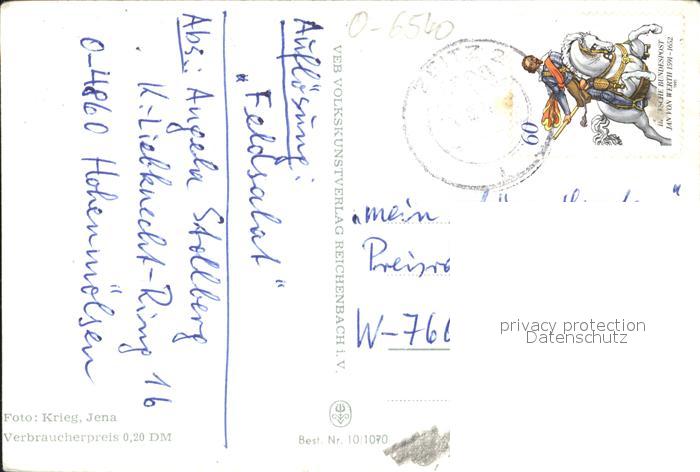 Auflösung:
"Feldsalat"
Abs.: Angela Stollberg
K.-Liebknecht-Ring 16
O-4860 Hohenmölsen
Foto: Krieg, Jena
Verbraucherpreis 0,20 DM
VEB VOLKSKUNSTVERLAG REICHENBACH i. V.
Best. Nr. 10/1070
O-6540
60
DEUTSCHE BUNDESPOST
JAN VON WERTH 1591-1652
„mein
W-766
privacy protection
Datenschutz